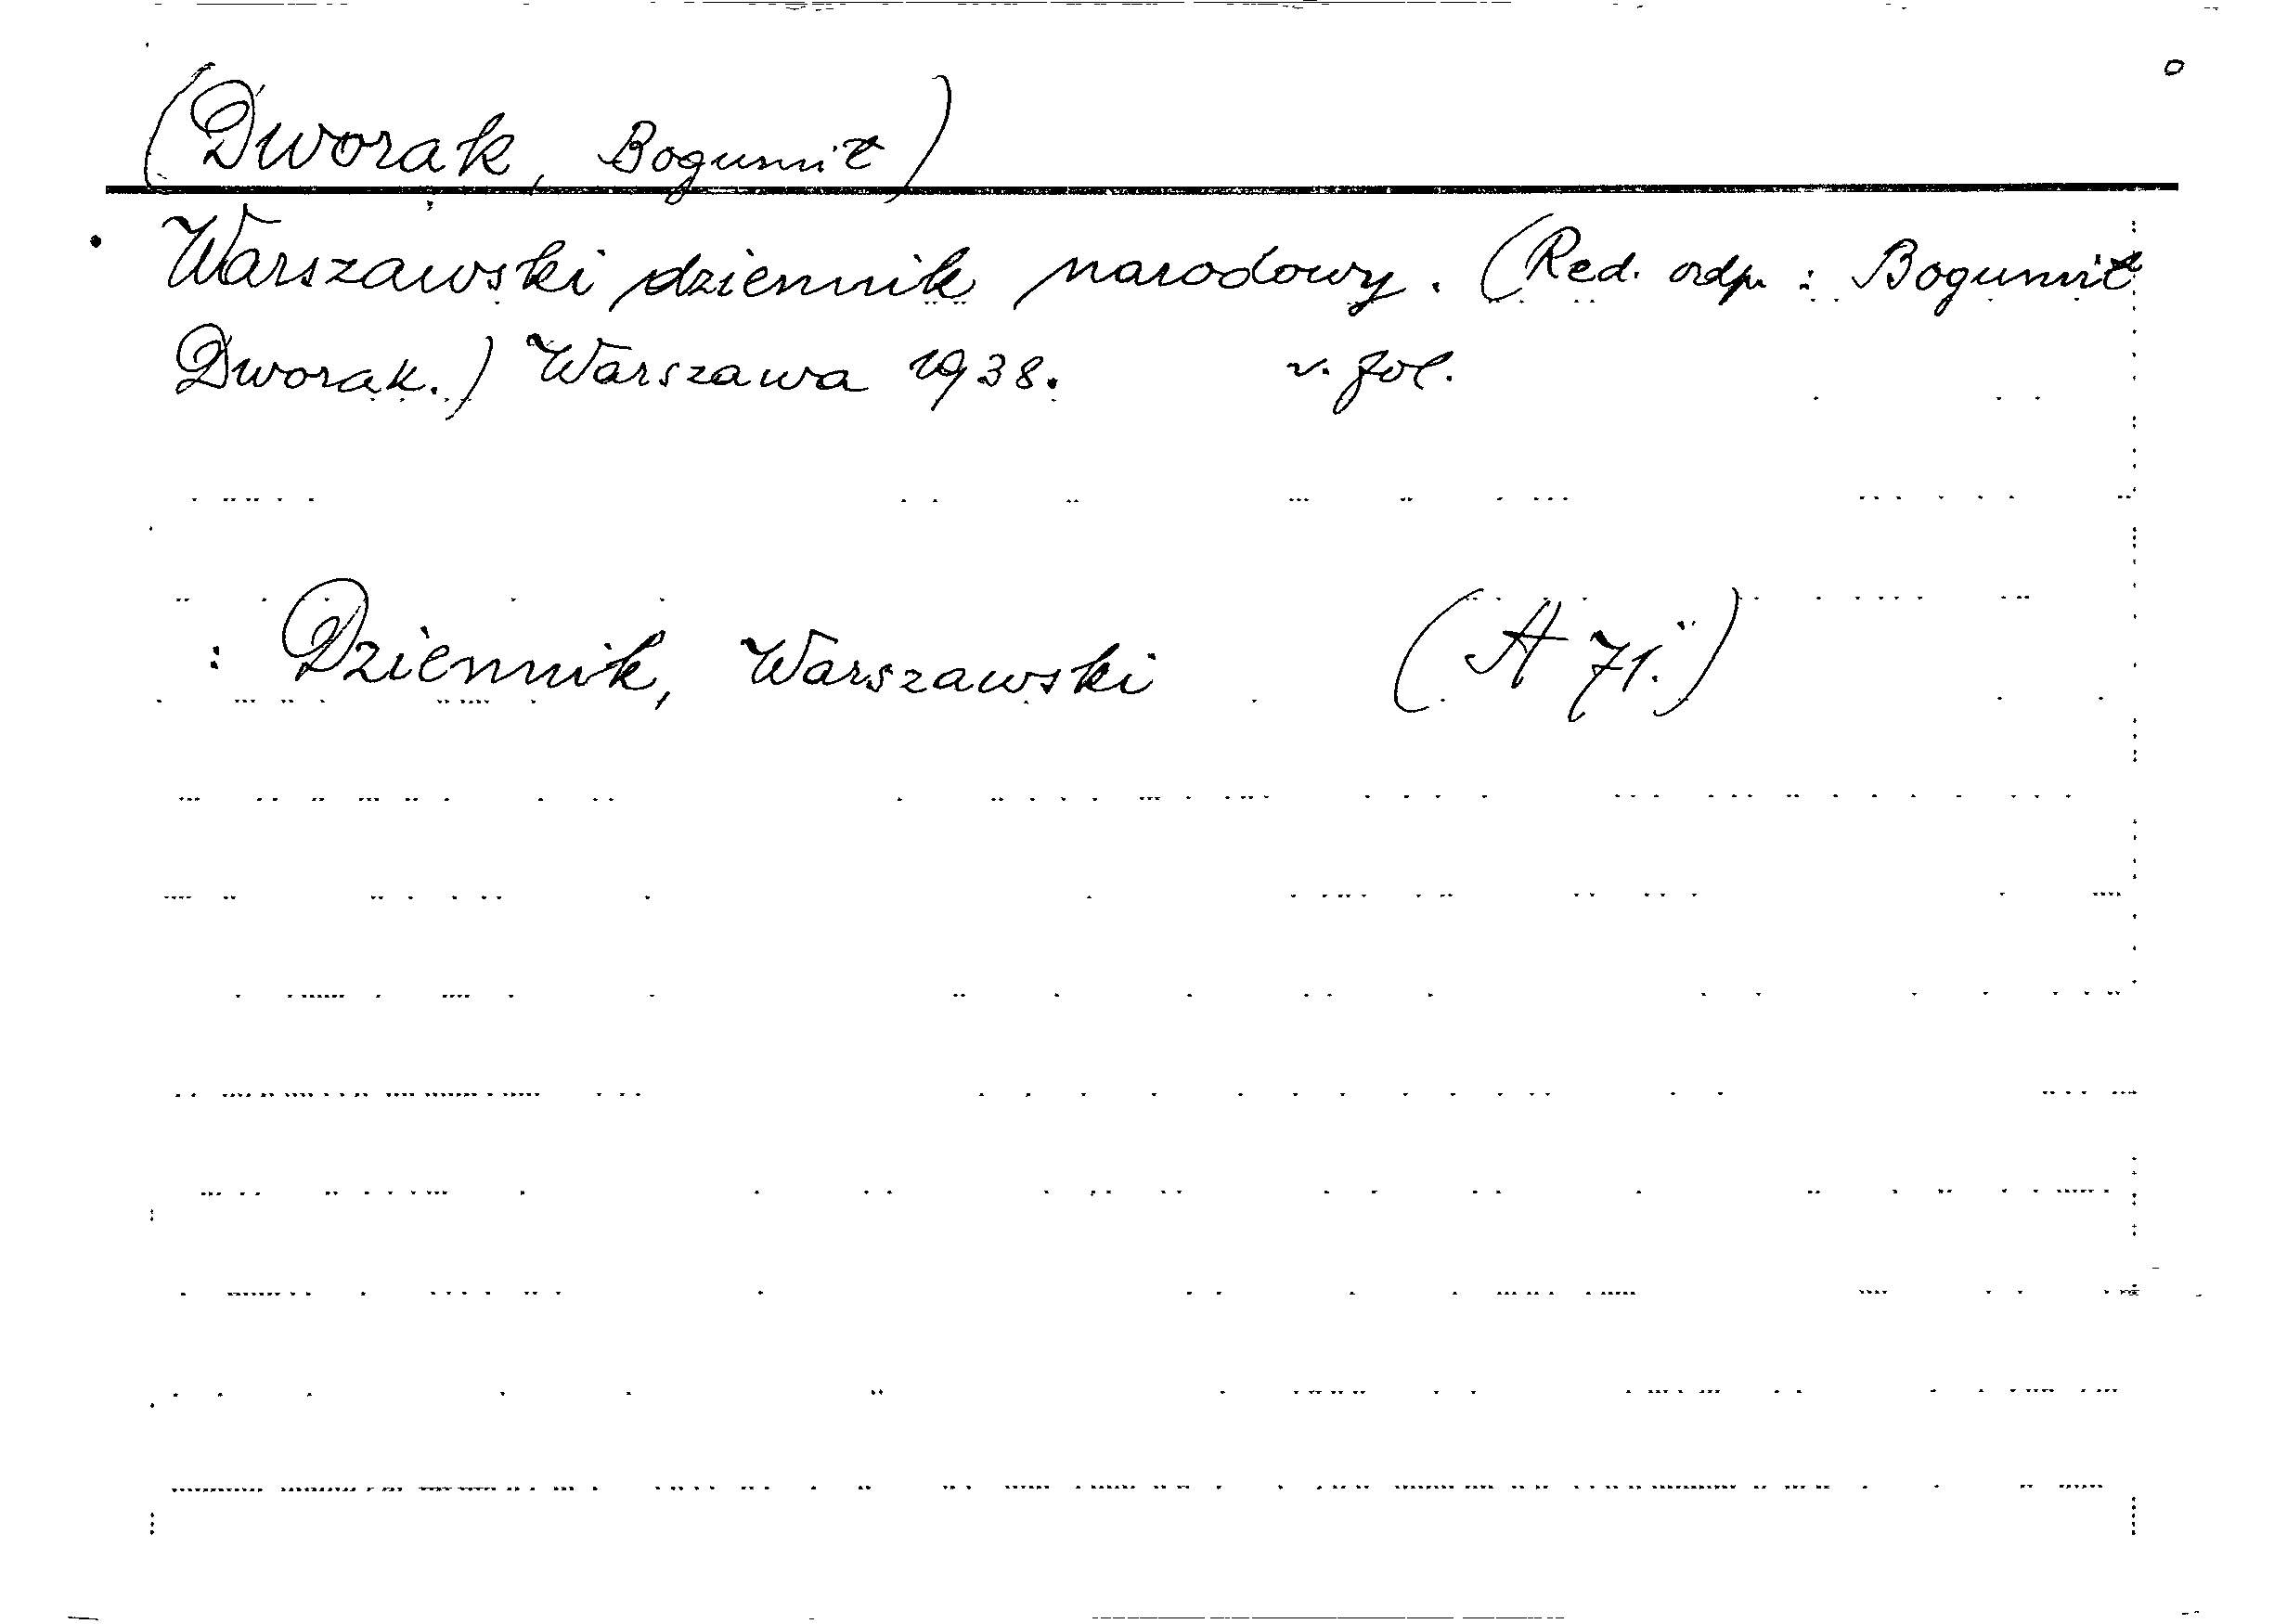 (Dworak, Bogumił)
Warszawski dziennik narodowy. (Red. odp. : Bogumił
Dworak.) Warszawa 1938. v. fol.
: Dziennik, Warszawski (A 71.)